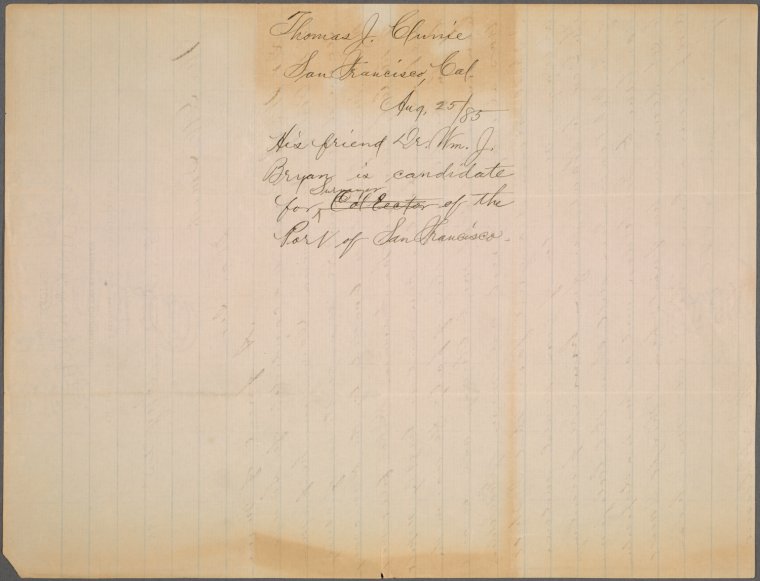 Thomas J. Clunie
San Francisco, Cal.
Aug. 25/85
His friend Dr. Wm. J.
Bryan is candidate
Surveyor
for Collector of the
Port of San Francisco.